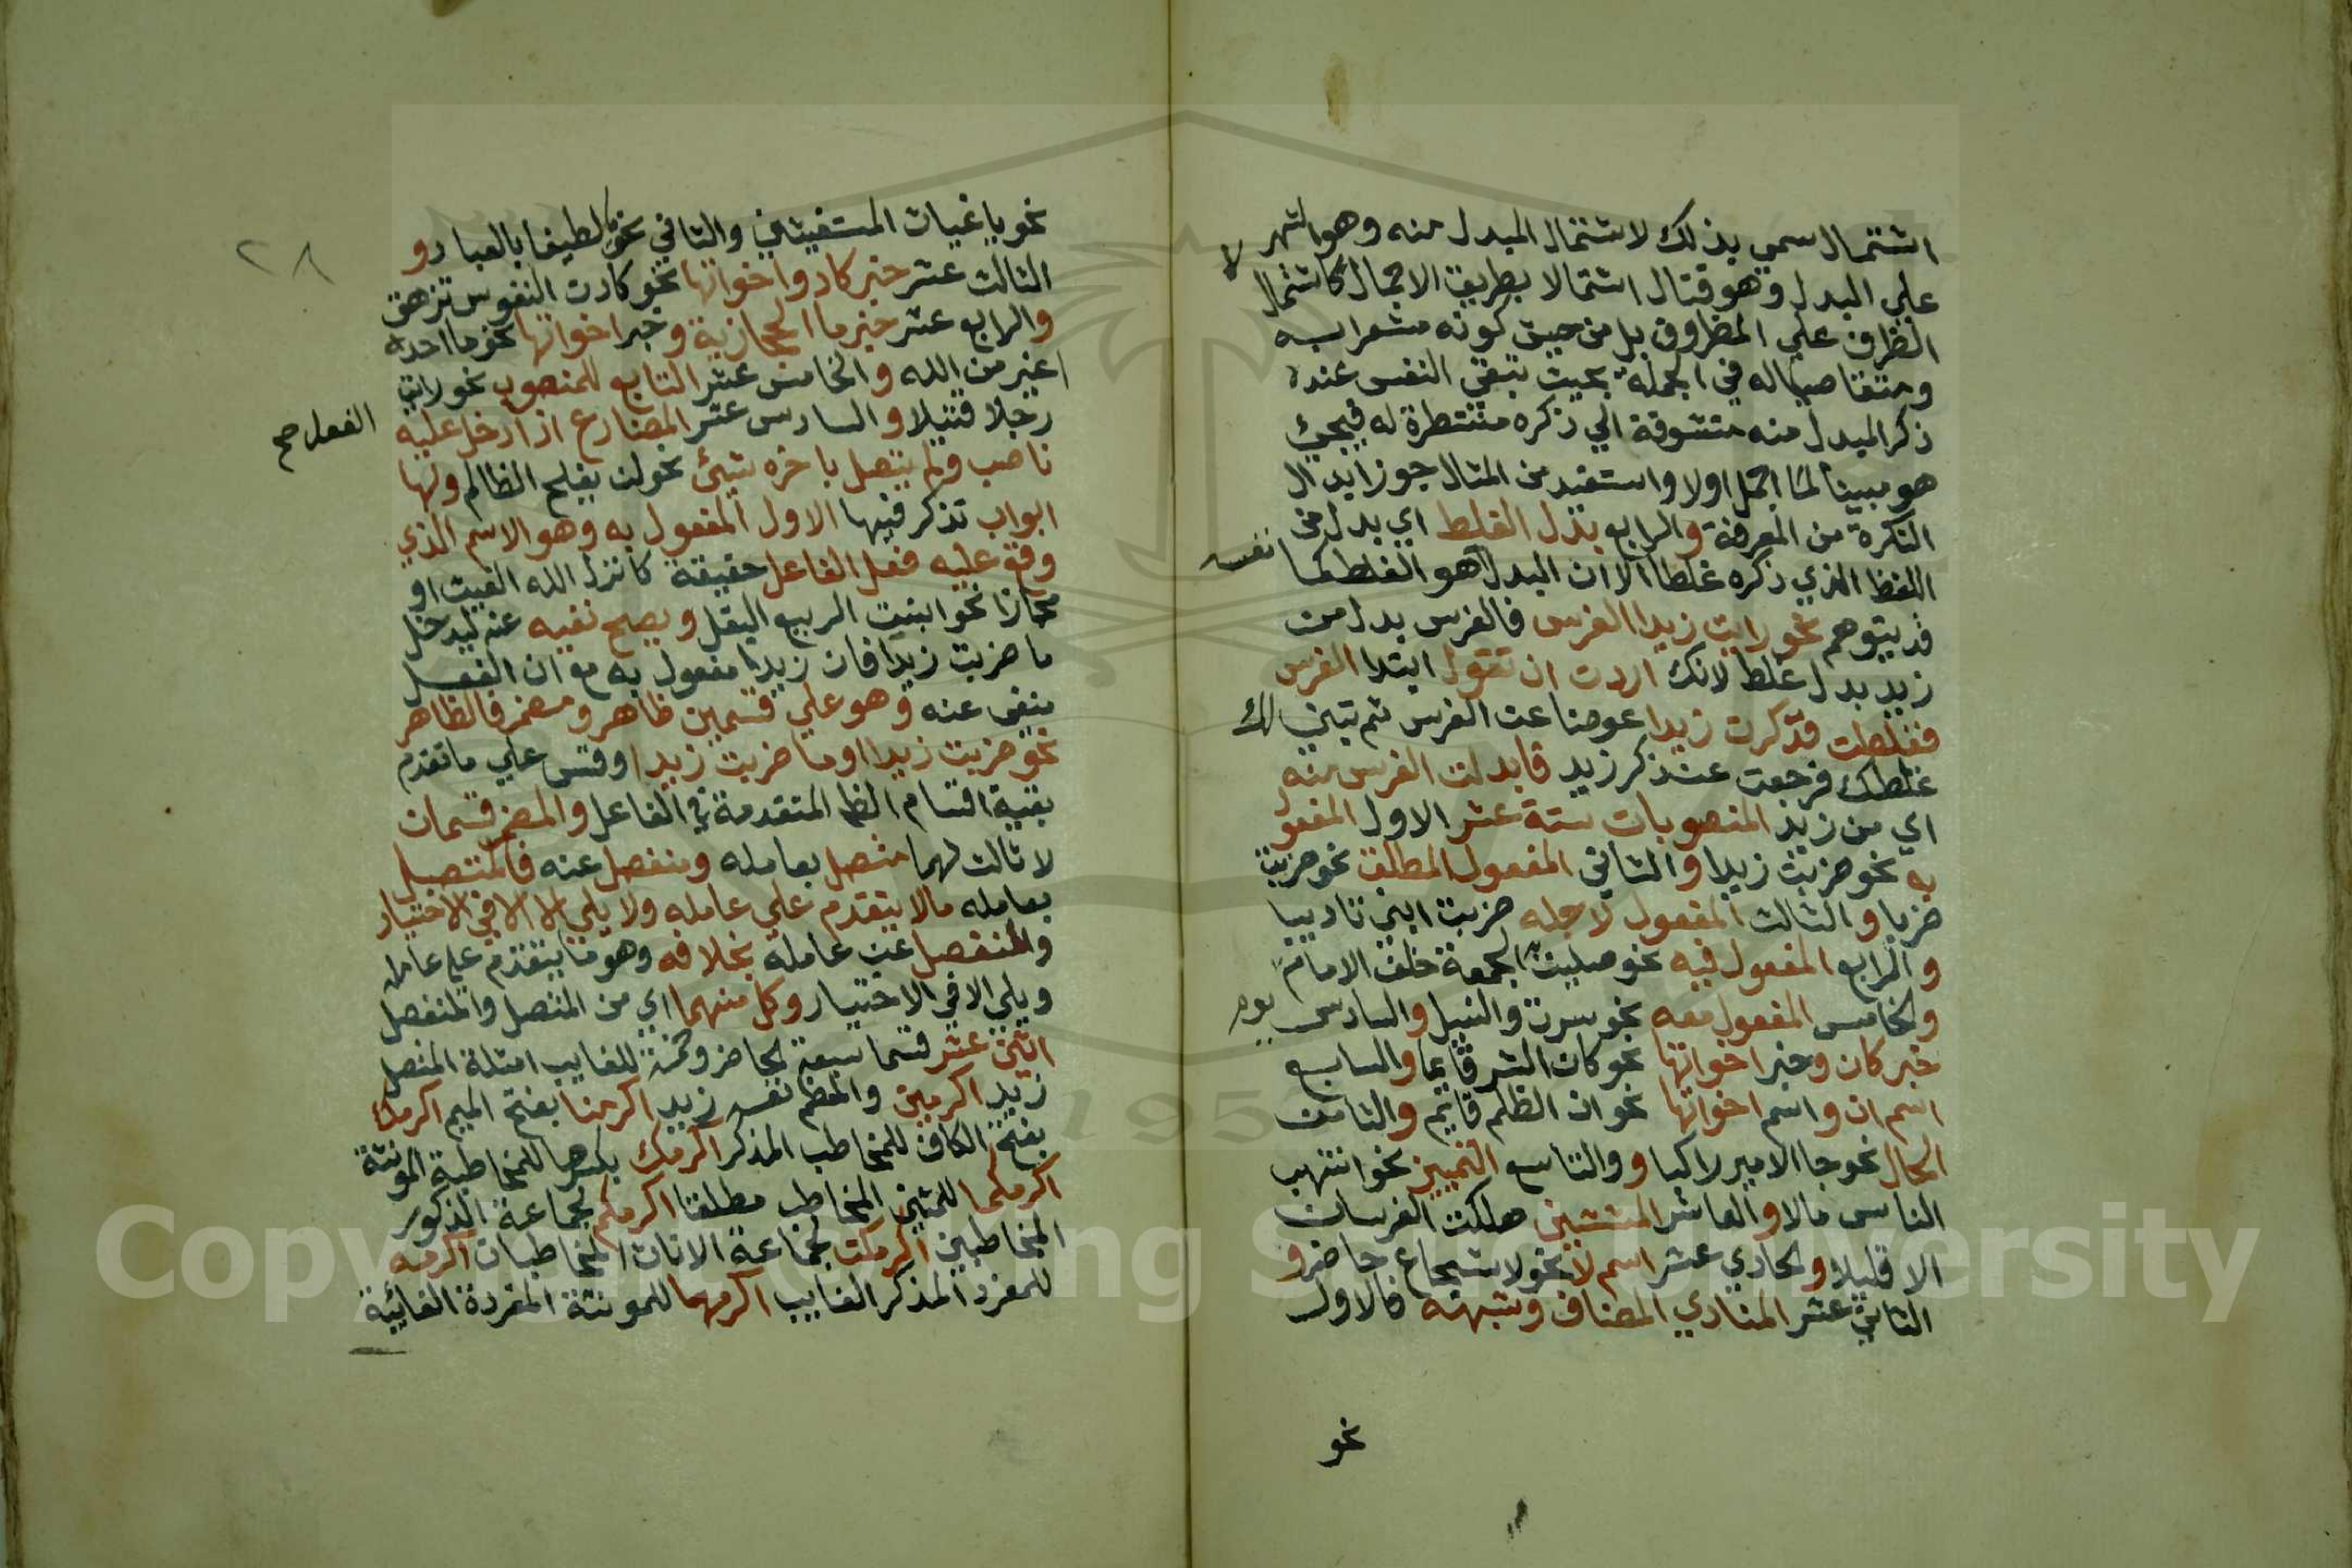 اشتمال سمي بذلك لاشتمال المبدل منه وهو الشهر لا
علي البدل وهو قتال اشتمالا بطريق الاجمال كاشتمال
الظرف علي المظروف بل من حيث كونه مشعرا به
ومتقاضيا له في الجملة بحيث تبقي النفس عند
ذكر المبدل منه متشوقة الي ذكره منتظرة له فيجئ
هو مبينا لما اجمل اولا واستفيد من المثال جواز ابدال
النكرة من المعرفة والرابع بدل الغلط اي بدل من
اللفظ الذي ذكره غلطا لا ان البدل هو نفسه الغلط كما
قد يتوهم نحو رايت زيدا الفرس فالفرس بدل من
زيد بدل غلط لانك اردت ان تقول ابتدا الفرس
فغلطت فذكرت زيدا عوضا عن الفرس ثم تبين لك
غلطك فرجعت عند ذكر زيد فابدلت الفرس منه
اي من زيد المنصوبات ستة عشر الاول المفعول
به نحو ضربت زيدا والثاني المفعول المطلق نحو ضربت
ضربا والثالث المفعول لاجله ضربت ابني تاديبا
والرابع المفعول فيه نحو صليت يوم الجمعة خلف الامام
والخامس المفعول معه نحو سرت والنيل والسادس
خبر كان وخبر اخواتها نحو كان الشر قايما والسابع
اسم ان واسم اخواتها نحو ان الظلم قايم والثامن
الحال نحو جا الامير راكبا و والتاسع التمييز نحو انتهب
الناس مالا والعاشر المستثني هلكت الفرسان
الا قليلا والحادي عشر اسم لا نحو لا شجاع حاضر و
الثاني عشر المنادي المضاف وشبهه فالاول
نحو
٢٨
نحو يا غياث المستغيثين والثاني نحو يا لطيفا بالعباد و
الثالث عشر خبر كاد واخواتها نحو كادت النفوس تزهق
والرابع عشر خبر ما الحجازية وخبر اخواتها نحو ما احد
اغير من الله والخامس عشر التابع للمنصوب نحو رايت
رجلا قتيلا والسادس عشر الفعل صح المضارع اذا دخل عليه
ناصب ولم يتصل باخره شيئ نحو لن يفلح الظالم ولها
ابواب تذكر فيها الاول المفعول به وهو الاسم الذي
وقع عليه فعل الفاعل حقيقة كانزل الله الغيث او
مجازا نحو انبت الربيع البقل ويصح نفيه عنه ليدخل
ما ضربت زيدا فان زيدا مفعول به مع ان الفعل
منفي عنه وهو علي قسمين ظاهر ومضمر فالظاهر
نحو ضربت زيدا او ما ضربت زيدا وقس علي ما تقدم
بقية اقسام الظا المتقدمة في الفاعل والمضمر قسمان
لا ثالث لهما متصل بعامله ومنفصل عنه فالمتصل
بعامله ما لا يتقدم علي عامله ولا يلي الا في الاختيار
والمنفصل عن عامله بخلافه وهو ما يتقدم علي عامله
ويلي الا في الاختيار وكل منهما اي من المتصل والمنفصل
اثني عشر قسما سبعة للحاضر وخمسة للغايب امثلة المتصل
زيد اكرمني والمعظم نفسه زيد اكرمنا بفتح الميم اكرمك
بفتح الكاف للمخاطب المذكر اكرمك بكسرها للمخاطبة المونثة
اكرمكما للمثني المخاطب مطلقا اكرمكم لجماعة الذكور
المخاطبين اكرمكن لجماعة الاناث المخاطبات اكرمه
للمفرد المذكر الغايب اكرمها للمونثة المفردة الغائبة